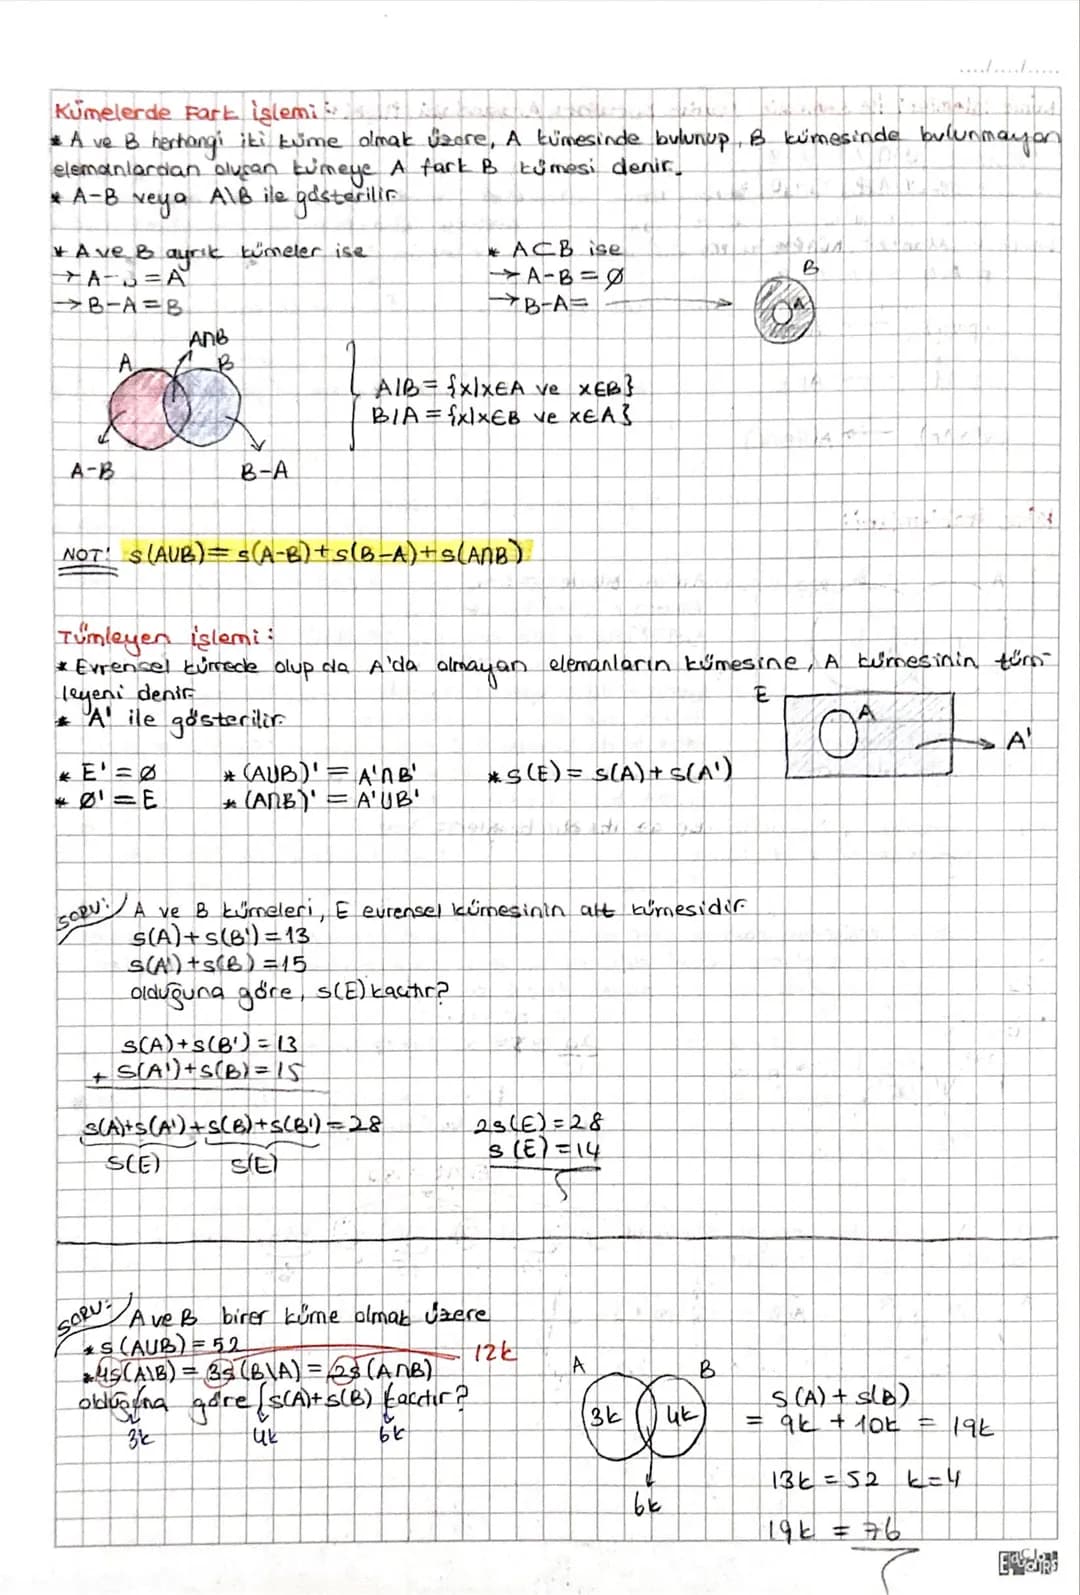 Kümelerde Fark işlemi:
* A ve B herhangi iki küme olmak üzere, A kümesinde bulunup, B kümesinde bulunmayan
elemanlardan oluşan kümeye A fark B kümesi denir.
* A-B veya A\B ile gösterilir.
* A ve B ayrık kümeler ise
→ A-B=A
→ B-A=B
* A⊂B ise
→ A-B=∅
→ B-A= →
B
A
A∩B
A
B
A-B
B-A
A\B={x|x∈A ve x∈B}
B/A={x|x∈B ve x∈A}
NOT! s(A∪B)=s(A-B)+s(B-A)+s(A∩B)
Tümleyen işlemi:
* Evrensel kümede olup da A'da olmayan elemanların kümesine, A kümesinin tüm-
leyeni denir.
* A' ile gösterilir.
E
A
A'
* E'=∅ * (A∪B)'=A'∩B' * s(E)=s(A)+s(A')
* ∅'=E * (A∩B)'=A'∪B'
SORU: A ve B kümeleri, E evrensel kümesinin alt kümesidir.
s(A)+s(B')=13
s(A')+s(B)=15
olduğuna göre, s(E) kaçtır?
s(A)+s(B')=13
+ s(A')+s(B)=15
s(A)+s(A')+s(B)+s(B')=28
s(E) s(E)
2s(E)=28
s(E)=14
SORU: A ve B birer küme olmak üzere
* s(A∪B)=52
* 4s(A\B)=3s(B\A)=2s(A∩B) 12k
olduğuna göre s(A)+s(B) kaçtır?
3k 4k 6k
A
B
3k 4k
6k
s(A)+s(B)
= 9k + 10k = 19k
13k=52 k=4
19k=76